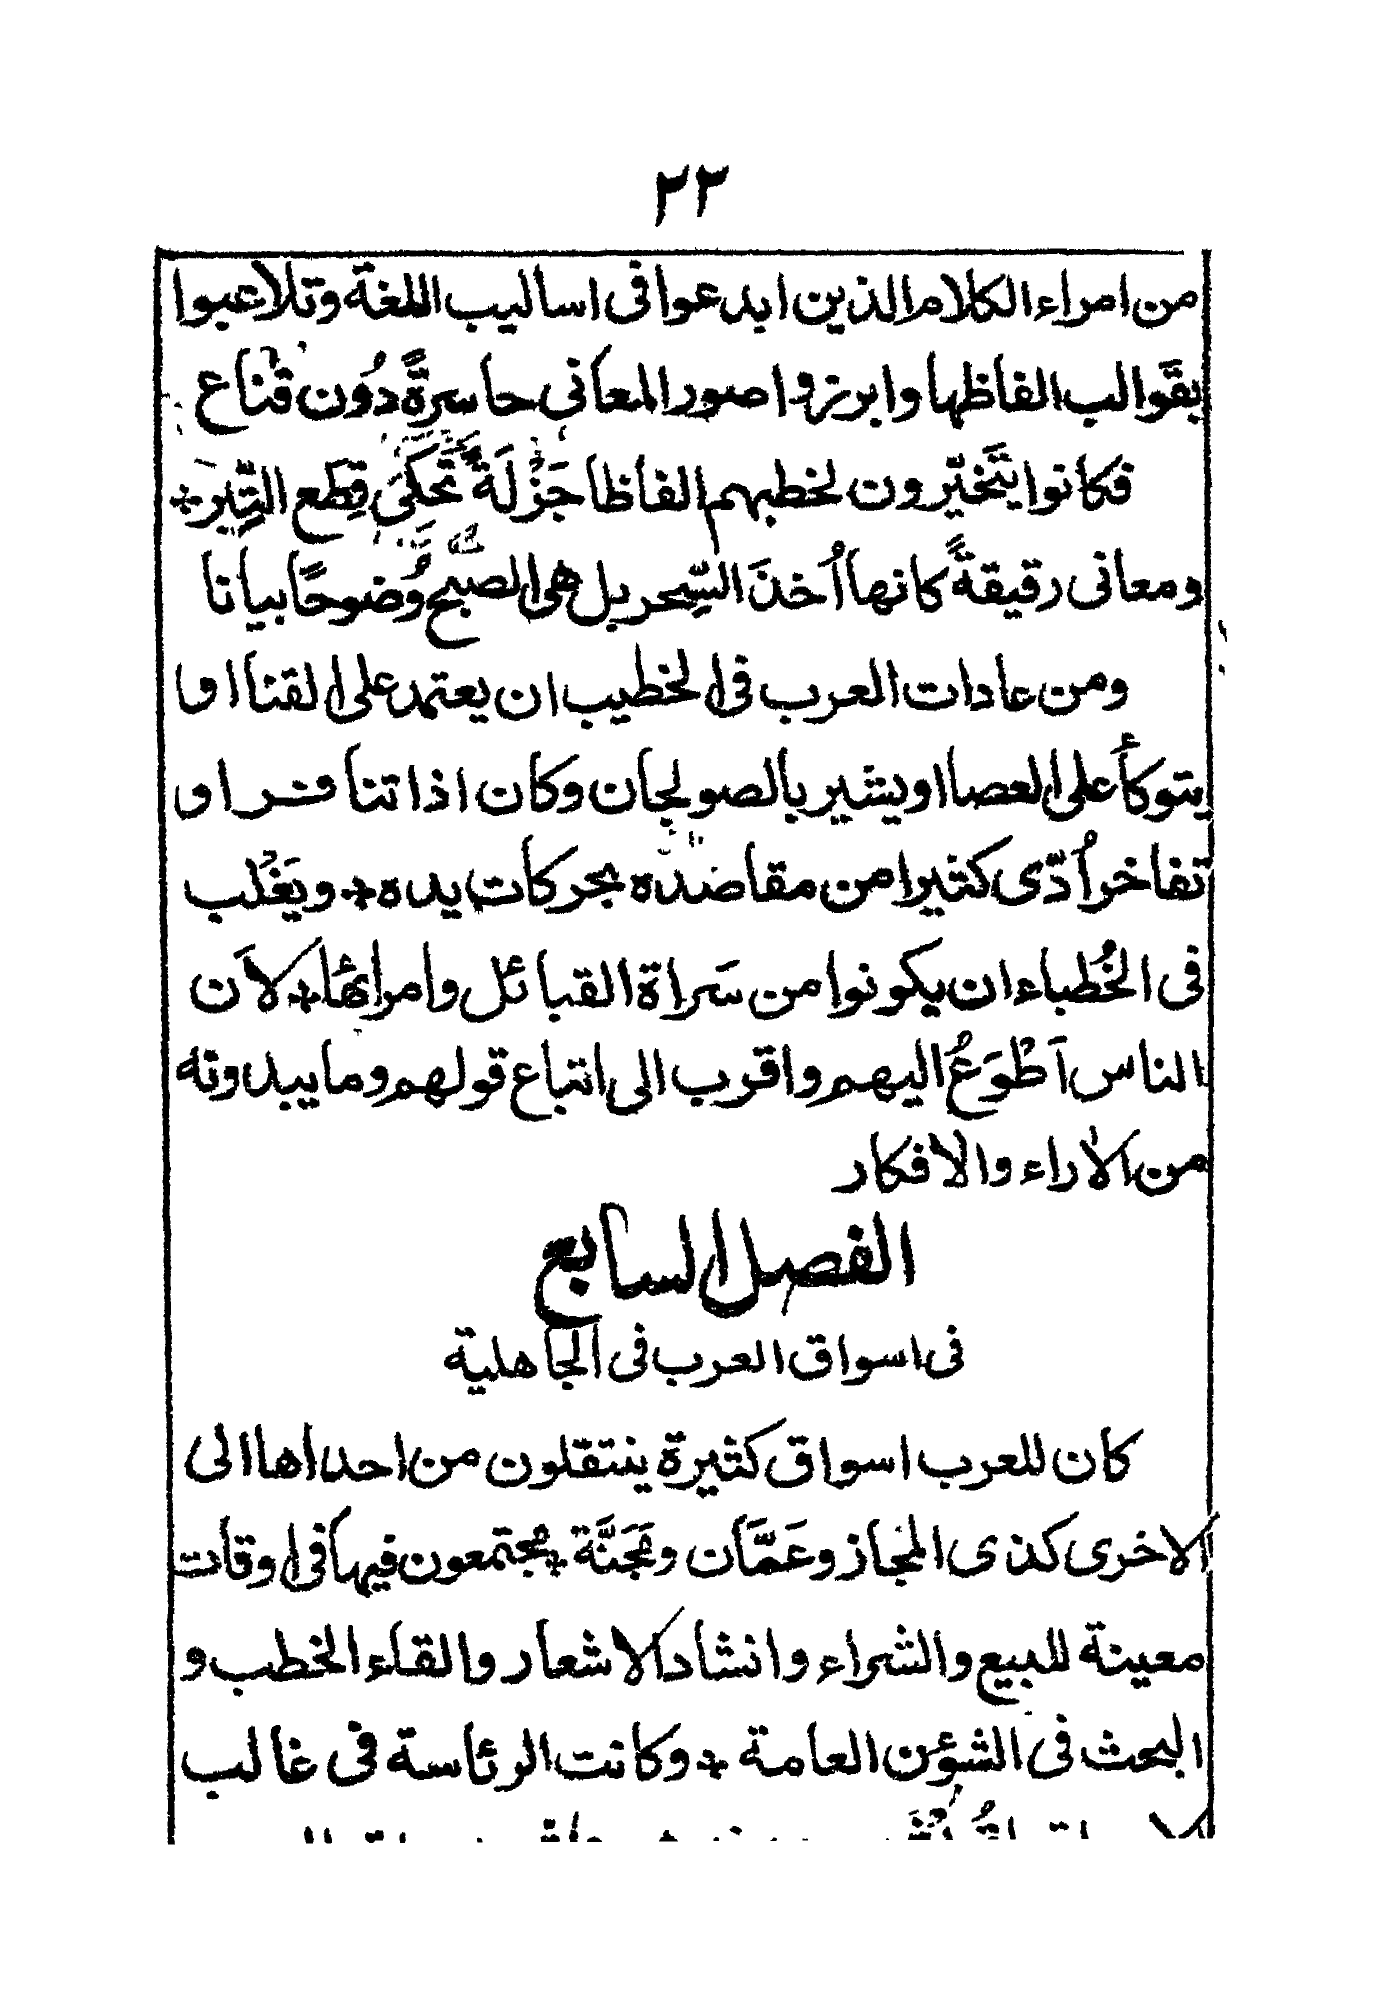 ٢٢
من امراء الكلام الذين ابدعوا فى اساليب اللغة وتلاعبوا
بقوالب الفاظها وابرزوا صور المعانى حاسرةً دُون قناع
فكانوا يتَخيّرون لخطبهم الفاظا جَزْلَةً تَحكِى قِطَع التِّبر *
ومعانى رقيقةً كانها اُخذَ السِّحر بل هى الصّبح وُضوحًا بيانا
ومن عادات العرب فى الخطيب ان يعتمد على القنا او
يتوكأ على العصا او يشير بالصولجان وكان اذا تنافر او
تفاخر اُدّى كثيرا من مقاصده بحركات يده * ويَغْلب
فى الخُطباء ان يكونوا من سَراة القبائل وامرائها * لان
الناس اَطْوَعُ اليهم واقرب الى اتباع قولهم وما يبدونه
من الاراء والافكار
الفصل السابع
فى اسواق العرب فى الجاهلية
كان للعرب اسواق كثيرة ينتقلون من احداها الى
الاخرى كذى المجاز وعَمَّان ومَجَنَّة * يجتمعون فيها فى اوقات
معينة للبيع والشراء وانشاد الاشعار والقاء الخطب و
البحث فى الشؤن العامة * وكانت الرئاسة فى غالب